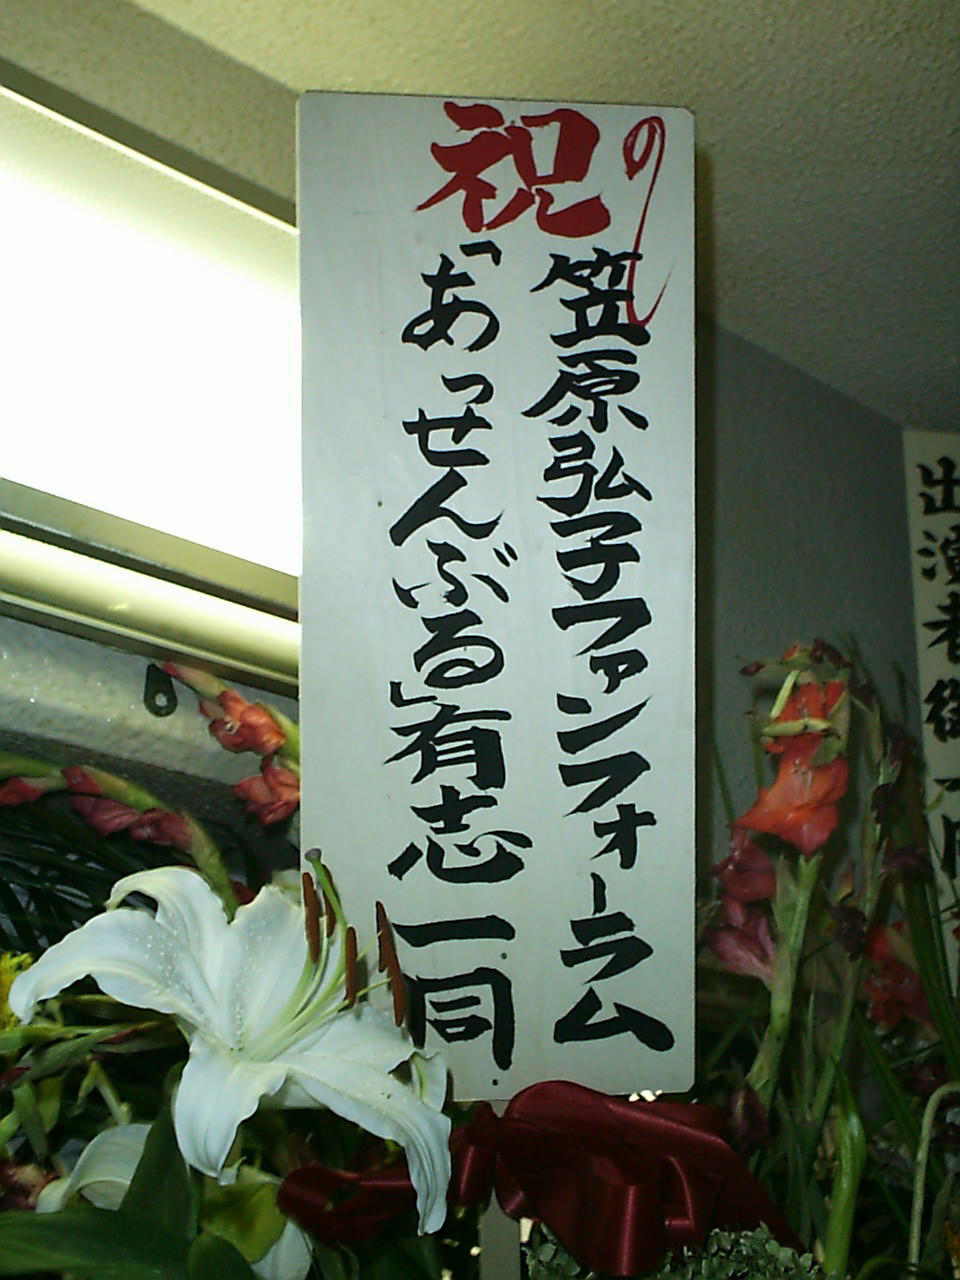 のし
祝
笠原弘子ファンフォーラム
「あっせんぶる」有志一同
出演者御一同